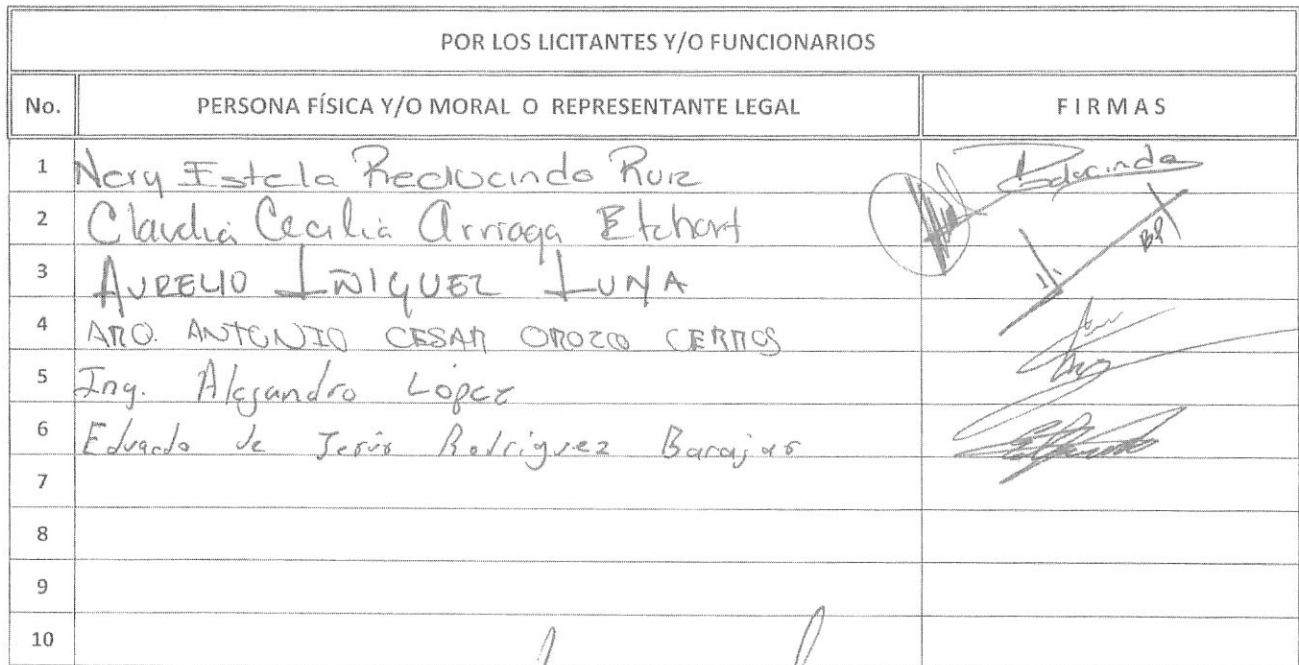 POR LOS LICITANTES Y/O FUNCIONARIOS
No. PERSONA FÍSICA Y/O MORAL O REPRESENTANTE LEGAL FIRMAS
1 Nery Estela Reducindo Ruiz Reducindo
2 Claudia Cecilia Arriaga Etchart
3 AURELIO IÑIGUEZ LUNA
4 ARQ. ANTONIO CESAR OROZCO CERROS
5 Ing. Alejandro López
6 Eduardo de Jesús Rodríguez Barajas
7
8
9
10